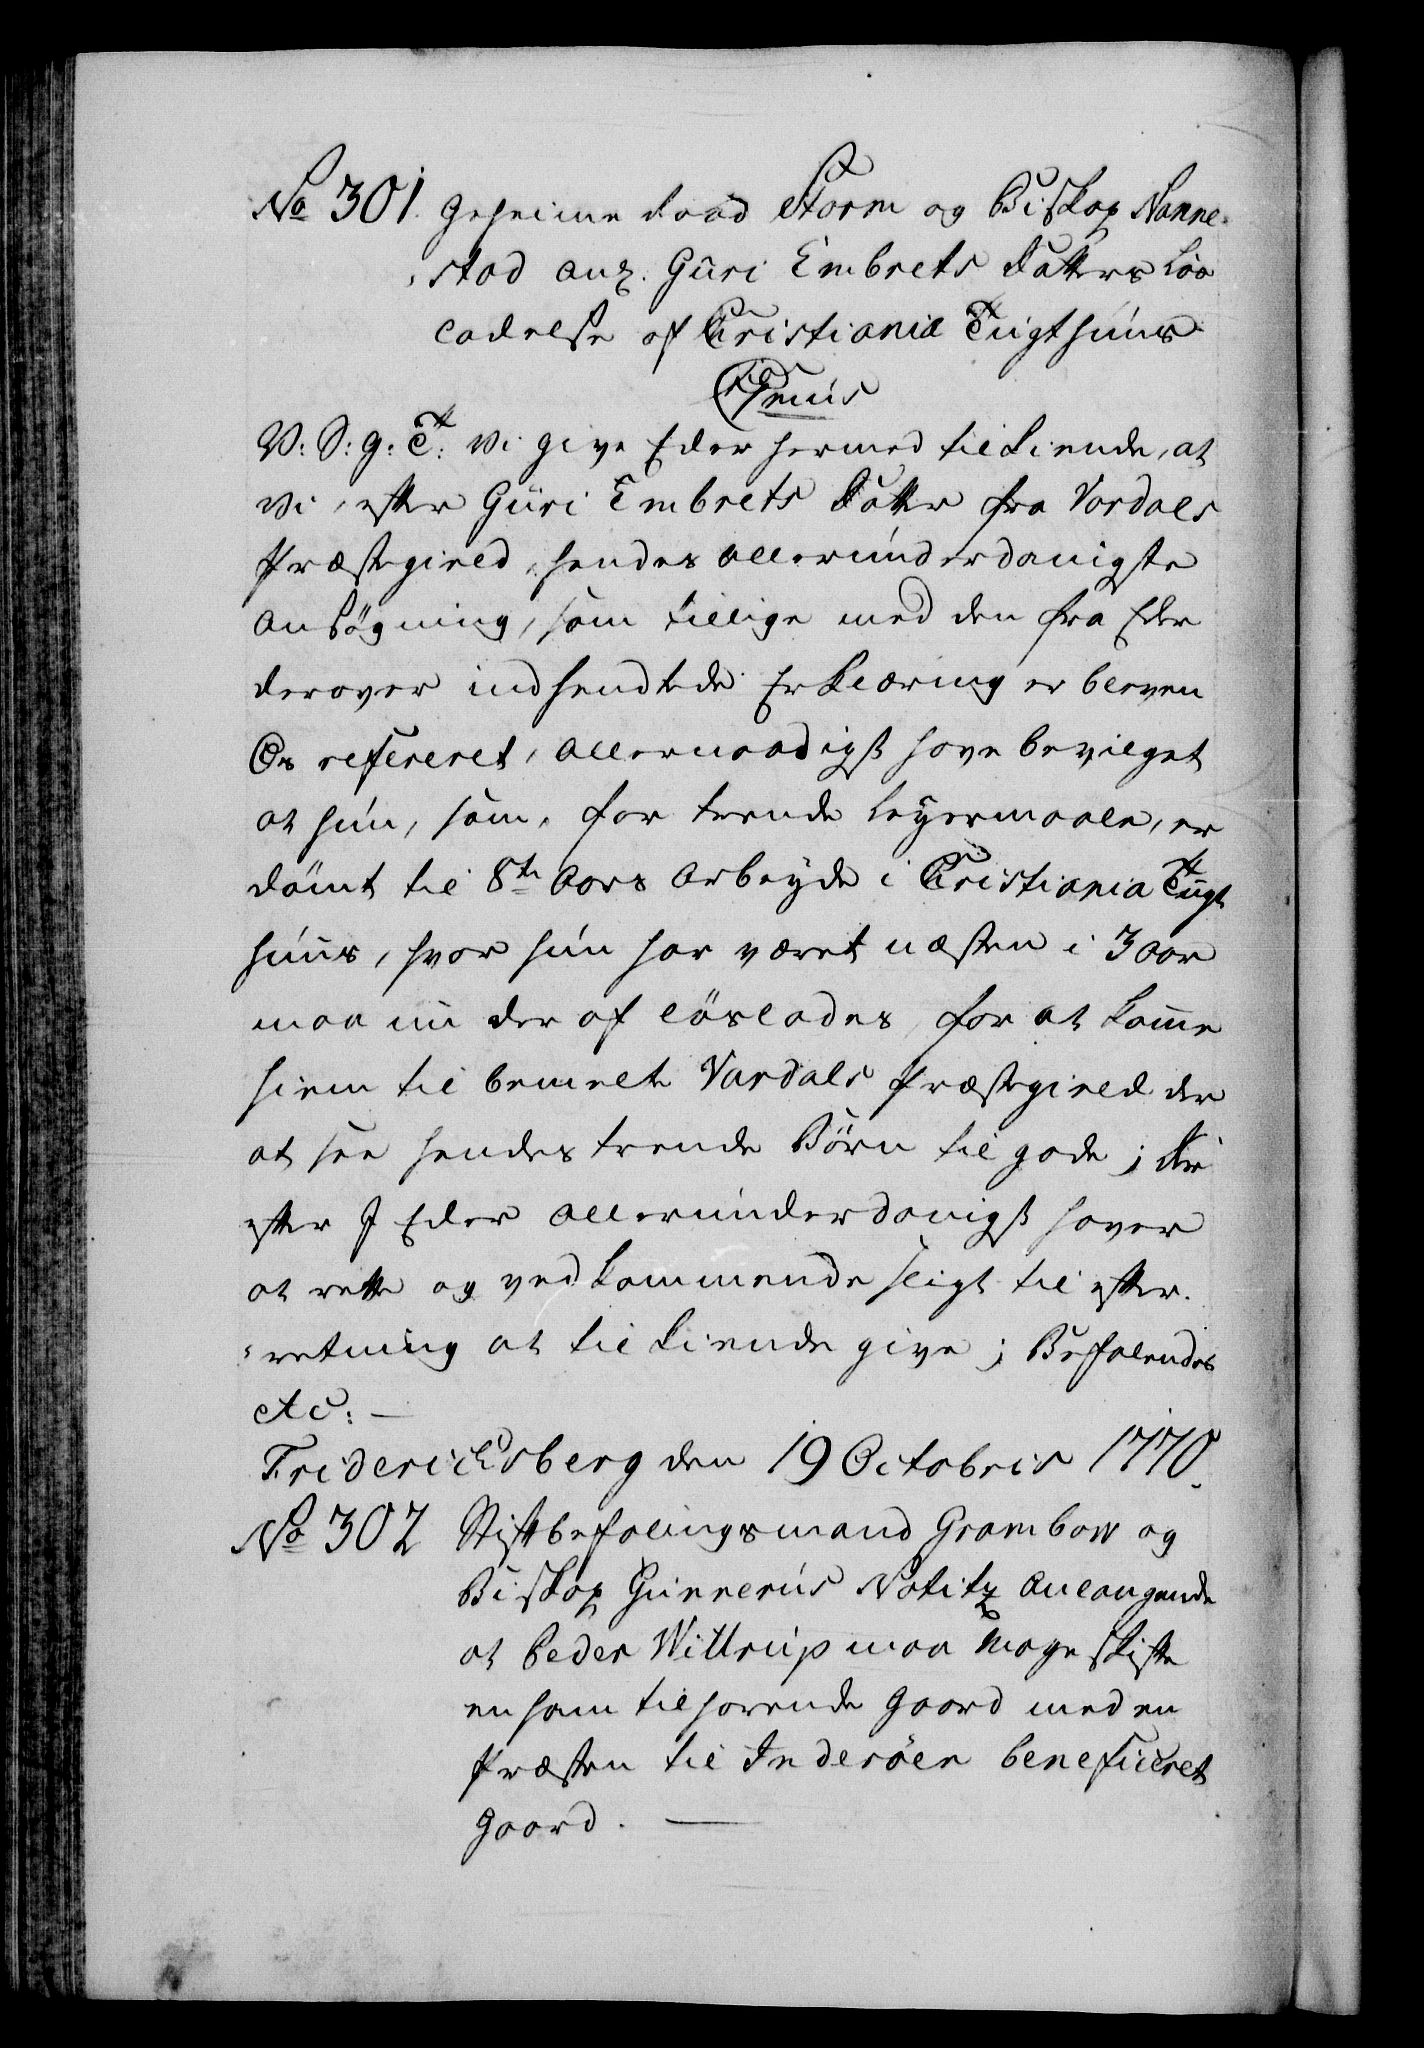 No 301. Geheime Raad Storm og Biskop Nanne-
stad anl. Guri Embrets Datters Løs
ladelse af Christianiæ Tugthuus
C 7mus
V: S: G: T: Vi give Eder hermed tilkiende, at
Vi, efter Guri Embrets Datter fra Vardals
Præstegield, hendes allerunderdanigste
Ansøgning, som tillige med den fra Eder
derover indsendtede Erklæring er bleven
Os refereret, allernaadigst have bevilget
at hun, som, for trende Leyermaale, er
dømt til 8te Aars Arbeyde i Christiania Tugt
huus, hvor hun har været næsten i 3 aar
maa nu der af løslades, for at komme
hiem til bemelte Vardals Præstegield der
at see hendes trende Børn til gode; Der
efter I Eder allerunderdanigst haver
at rette og vedkommende sligt til efter-
retning at tilkiende give; Befalendes
etc: —
Friderichsberg den 19 Octobris 1770.
No 302 Stiftbefalingsmand Grambow og
Biskop Gunnerus Notitz anlangende
at Peder Wittrup maa Mageskifte
en ham tilhørende Gaard med en
Præsten til Inderøen beneficeret
Gaard. —